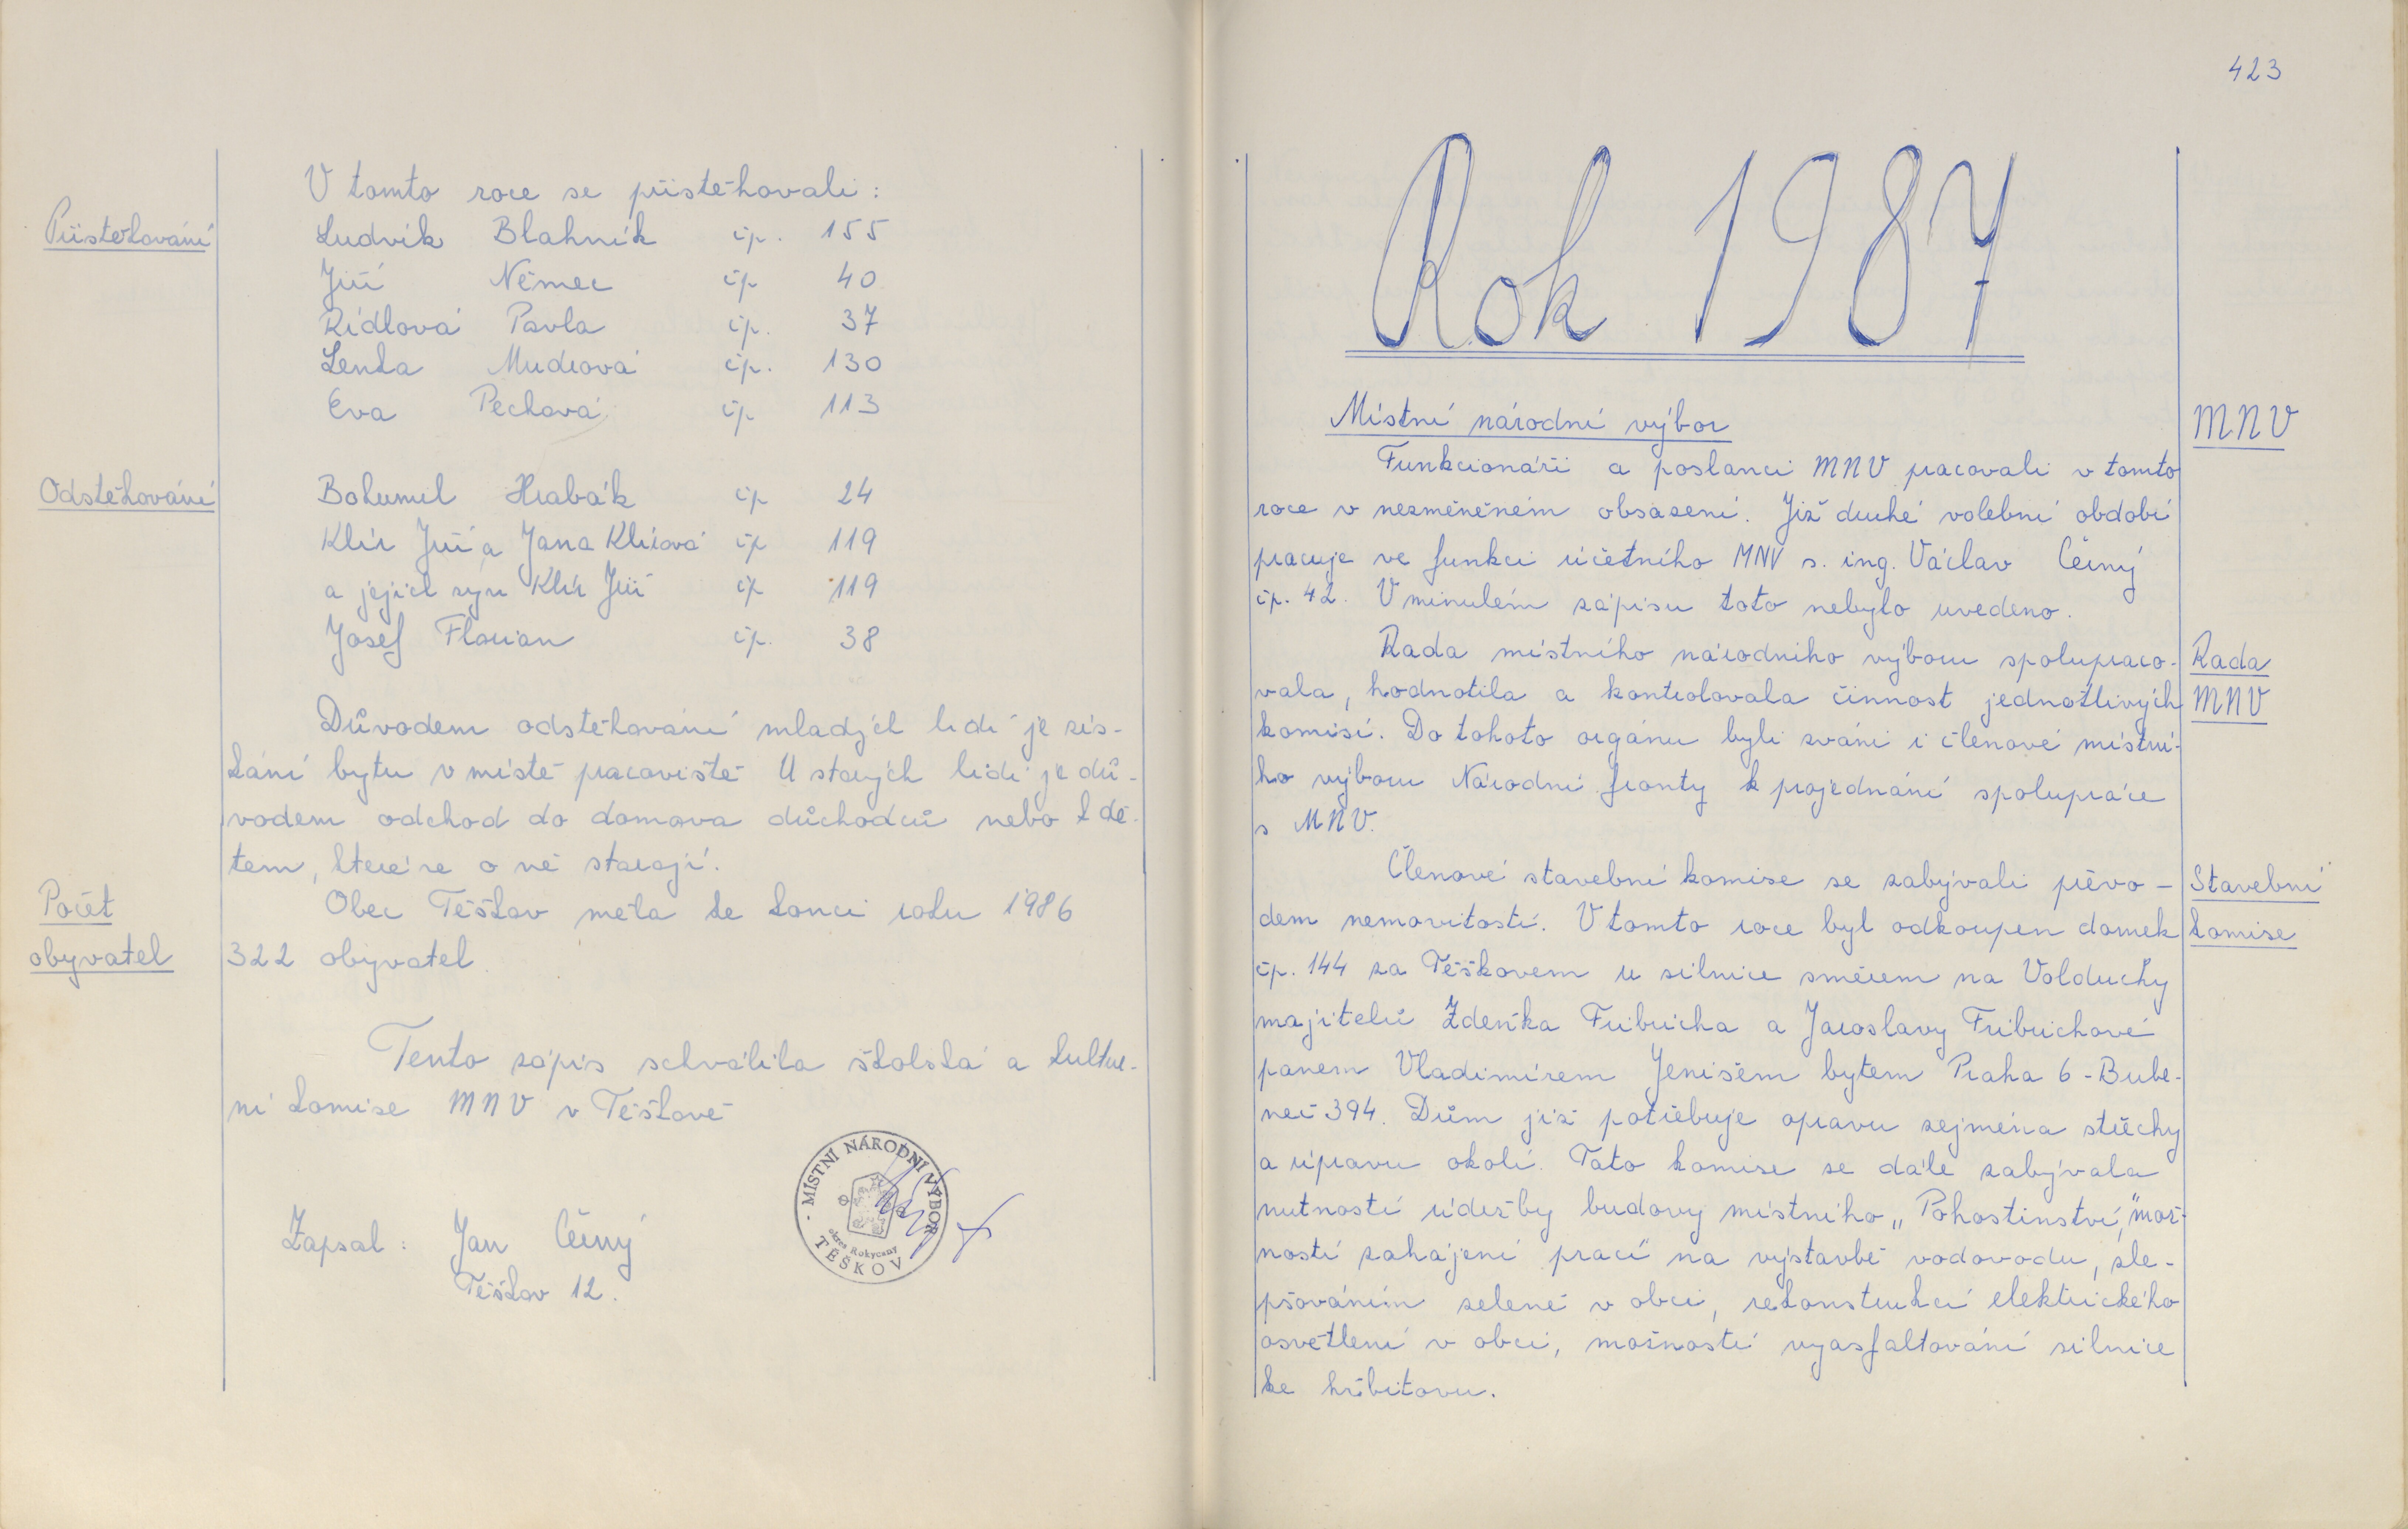 V tomto roce se přistěhovali:
Přistěhování
Ludvík Blahník čp. 155
Jiří Němec čp 40
Rídlová Pavla čp. 37
Lenka Mudrová čp. 130
Eva Pechová čp 113
Odstěhování
Bohumil Hrabák čp 24
Klír Jiří a Jana Klírová čp 119
a jejich syn Klír Jiří čp 119
Josef Florian čp. 38
Důvodem odstěhování mladých lidí je zís-
kání bytu v místě pracoviště U starých lidí je dů-
vodem odchod do domova důchodců nebo k dě-
tem, které se o ně starají.
Počet
obyvatel
Obec Těškov měla ke konci roku 1986
322 obyvatel
Tento zápis schválila školská a kultur-
ní komise MNV v Těškově
Zapsal: Jan Černý
Těškov 12.
· MÍSTNÍ NÁRODNÍ VÝBOR ·
okres Rokycany
TĚŠKOV
423
Rok 1987
Místní národní výbor
MNV
Funkcionáři a poslanci MNV pracovali v tomto
roce v nezměněném obsazení. Již druhé volební období
pracuje ve funkci účetního MNV s. ing. Václav Černý
čp. 42. V minulém zápisu toto nebylo uvedeno.
Rada místního národního výboru spolupraco-
Rada
MNV
vala, hodnotila a kontrolovala činnost jednotlivých
komisí. Do tohoto orgánu byli zváni i členové místní-
ho výboru Národní fronty k projednání spolupráce
s MNV.
Členové stavební komise se zabývali převo-
Stavební
komise
dem nemovitostí. V tomto roce byl odkoupen domek
čp. 144 za Těškovem u silnice směrem na Volduchy
majitelů Zdeňka Fribricha a Jaroslavy Fribrichové
panem Vladimírem Jenišem bytem Praha 6 - Bube-
neč 394. Dům již potřebuje opravu zejména střechy
a úpravu okolí. Tato komise se dále zabývala
nutností údržby budovy místního „Pohostinství", mož-
ností zahájení prací na výstavbě vodovodu, zle-
pšováním zeleně v obci, rekonstrukcí elektrického
osvětlení v obci, možností vyasfaltování silnice
ke hřbitovu.